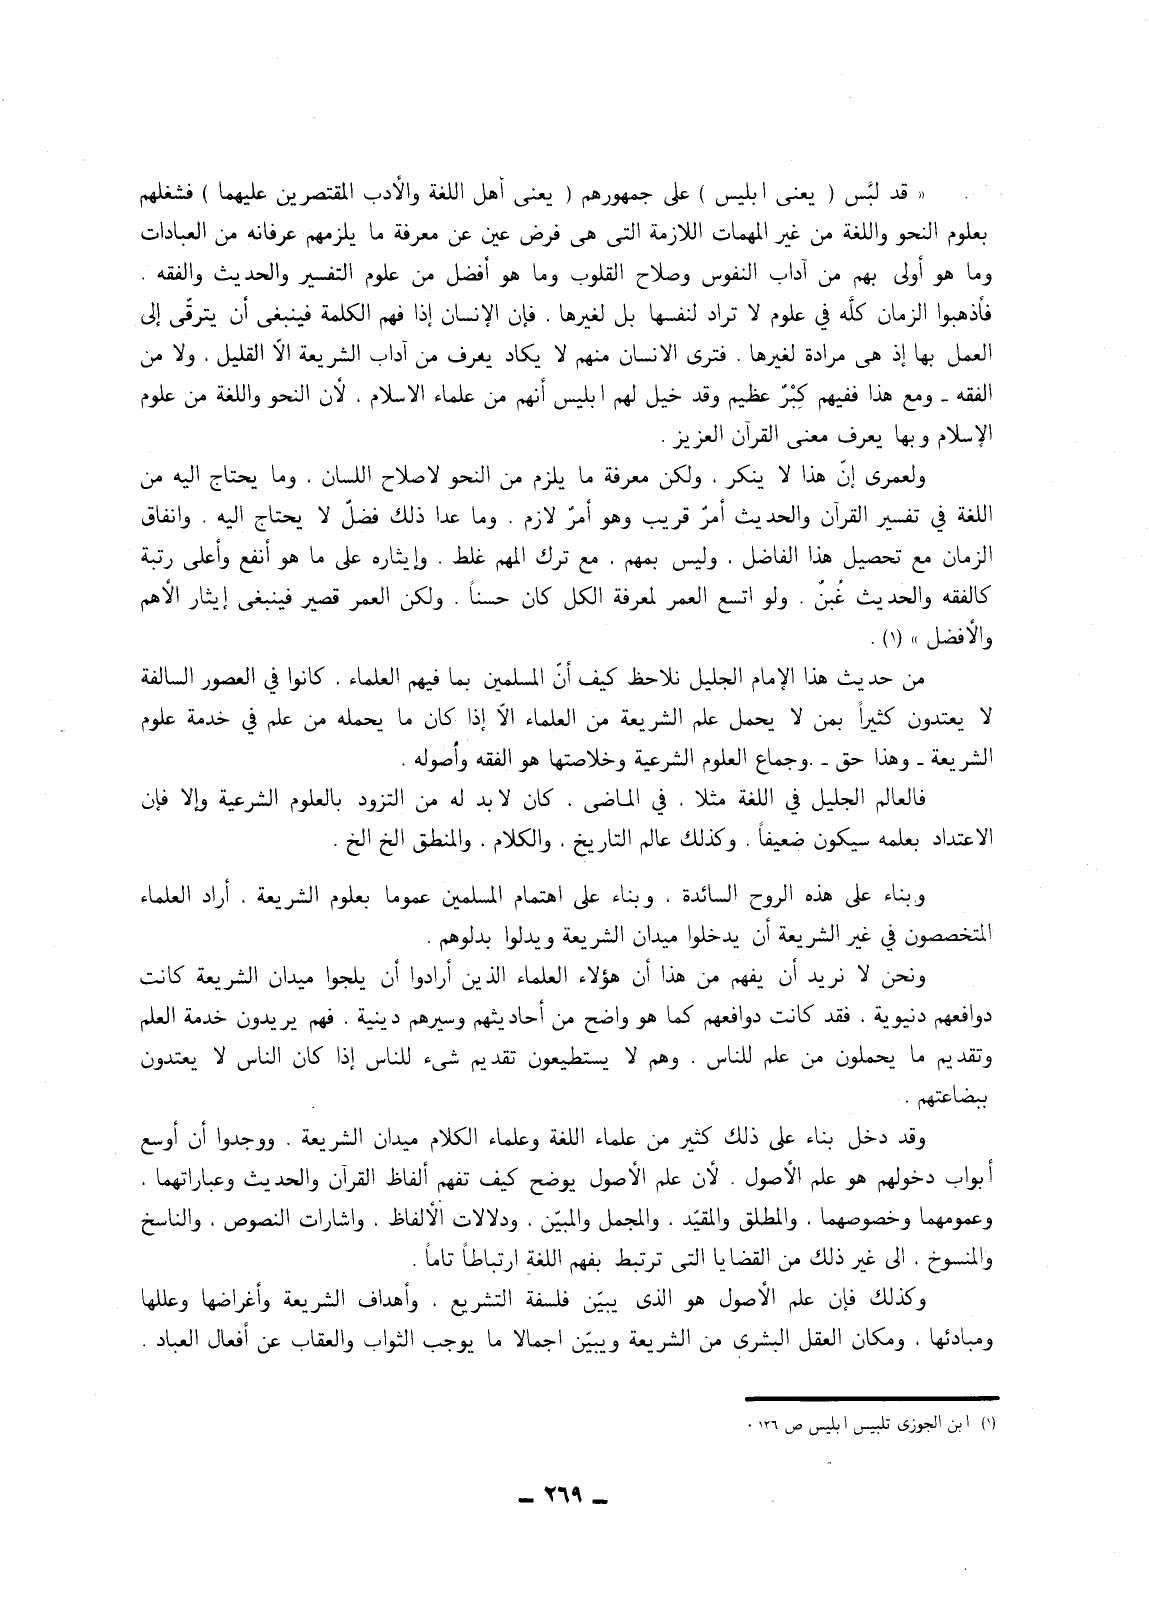 « قد لبَّس ( يعنى ابليس ) على جمهورهم ( يعنى أهل اللغة والأدب المقتصرين عليهما ) فشغلهم
بعلوم النحو واللغة من غير المهمات اللازمة التى هى فرض عين عن معرفة ما يلزمهم عرفانه من العبادات
وما هو أولى بهم من آداب النفوس وصلاح القلوب وما هو أفضل من علوم التفسير والحديث والفقه .
فأذهبوا الزمان كلَّه في علوم لا تراد لنفسها بل لغيرها . فإن الإنسان إذا فهم الكلمة فينبغى أن يترقَّى إلى
العمل بها إذ هى مرادة لغيرها . فترى الانسان منهم لا يكاد يعرف من آداب الشريعة الاّ القليل . ولا من
الفقه ـ ومع هذا ففيهم كِبْرٌ عظيم وقد خيل لهم ابليس أنهم من علماء الاسلام . لأن النحو واللغة من علوم
الإسلام وبها يعرف معنى القرآن العزيز .
ولعمرى إنّ هذا لا ينكر . ولكن معرفة ما يلزم من النحو لاصلاح اللسان . وما يحتاج اليه من
اللغة في تفسير القرآن والحديث أمرٌ قريب وهو أمرٌ لازم . وما عدا ذلك فضلٌ لا يحتاج اليه . وانفاق
الزمان مع تحصيل هذا الفاضل . وليس بمهم . مع ترك المهم غلط . وإيثاره على ما هو أنفع وأعلى رتبة
كالفقه والحديث غُبنٌ . ولو اتسع العمر لمعرفة الكل كان حسناً . ولكن العمر قصير فينبغى إيثار الأهم
والأفضل » (١) .
من حديث هذا الإمام الجليل نلاحظ كيف أنّ المسلمين بما فيهم العلماء . كانوا في العصور السالفة
لا يعتدون كثيراً بمن لا يحمل علم الشريعة من العلماء الاّ إذا كان ما يحمله من علم في خدمة علوم
الشريعة ـ وهذا حق ـ .وجماع العلوم الشرعية وخلاصتها هو الفقه وأصوله .
فالعالم الجليل في اللغة مثلا . في الماضى . كان لابد له من التزود بالعلوم الشرعية وإلا فإن
الاعتداد بعلمه سيكون ضعيفاً . وكذلك عالم التاريخ . والكلام . والمنطق الخ الخ .
وبناء على هذه الروح السائدة . وبناء على اهتمام المسلمين عموما بعلوم الشريعة . أراد العلماء
المتخصصون في غير الشريعة أن يدخلوا ميدان الشريعة ويدلوا بدلوهم .
ونحن لا نريد أن يفهم من هذا أن هؤلاء العلماء الذين أرادوا أن يلجوا ميدان الشريعة كانت
دوافعهم دنيوية . فقد كانت دوافعهم كما هو واضح من أحاديثهم وسيرهم دينية . فهم يريدون خدمة العلم
وتقديم ما يحملون من علم للناس . وهم لا يستطيعون تقديم شىء للناس إذا كان الناس لا يعتدون
ببضاعتهم .
وقد دخل بناء على ذلك كثير من علماء اللغة وعلماء الكلام ميدان الشريعة . ووجدوا أن أوسع
أبواب دخولهم هو علم الأصول . لأن علم الأصول يوضح كيف تفهم ألفاظ القرآن والحديث وعباراتهما .
وعمومهما وخصوصهما . والمطلق والمقيّد . والمجمل والمبيّن . ودلالات الألفاظ . واشارات النصوص . والناسخ
والمنسوخ . الى غير ذلك من القضايا التى ترتبط بفهم اللغة ارتباطاً تاماً .
وكذلك فإن علم الأصول هو الذى يبيّن فلسفة التشريع . وأهداف الشريعة وأغراضها وعللها
ومبادئها . ومكان العقل البشرى من الشريعة ويبيّن اجمالا ما يوجب الثواب والعقاب عن أفعال العباد .
(١) ابن الجوزى تلبيس ابليس ص ١٢٦ .
ـ ٢٦٩ ـ